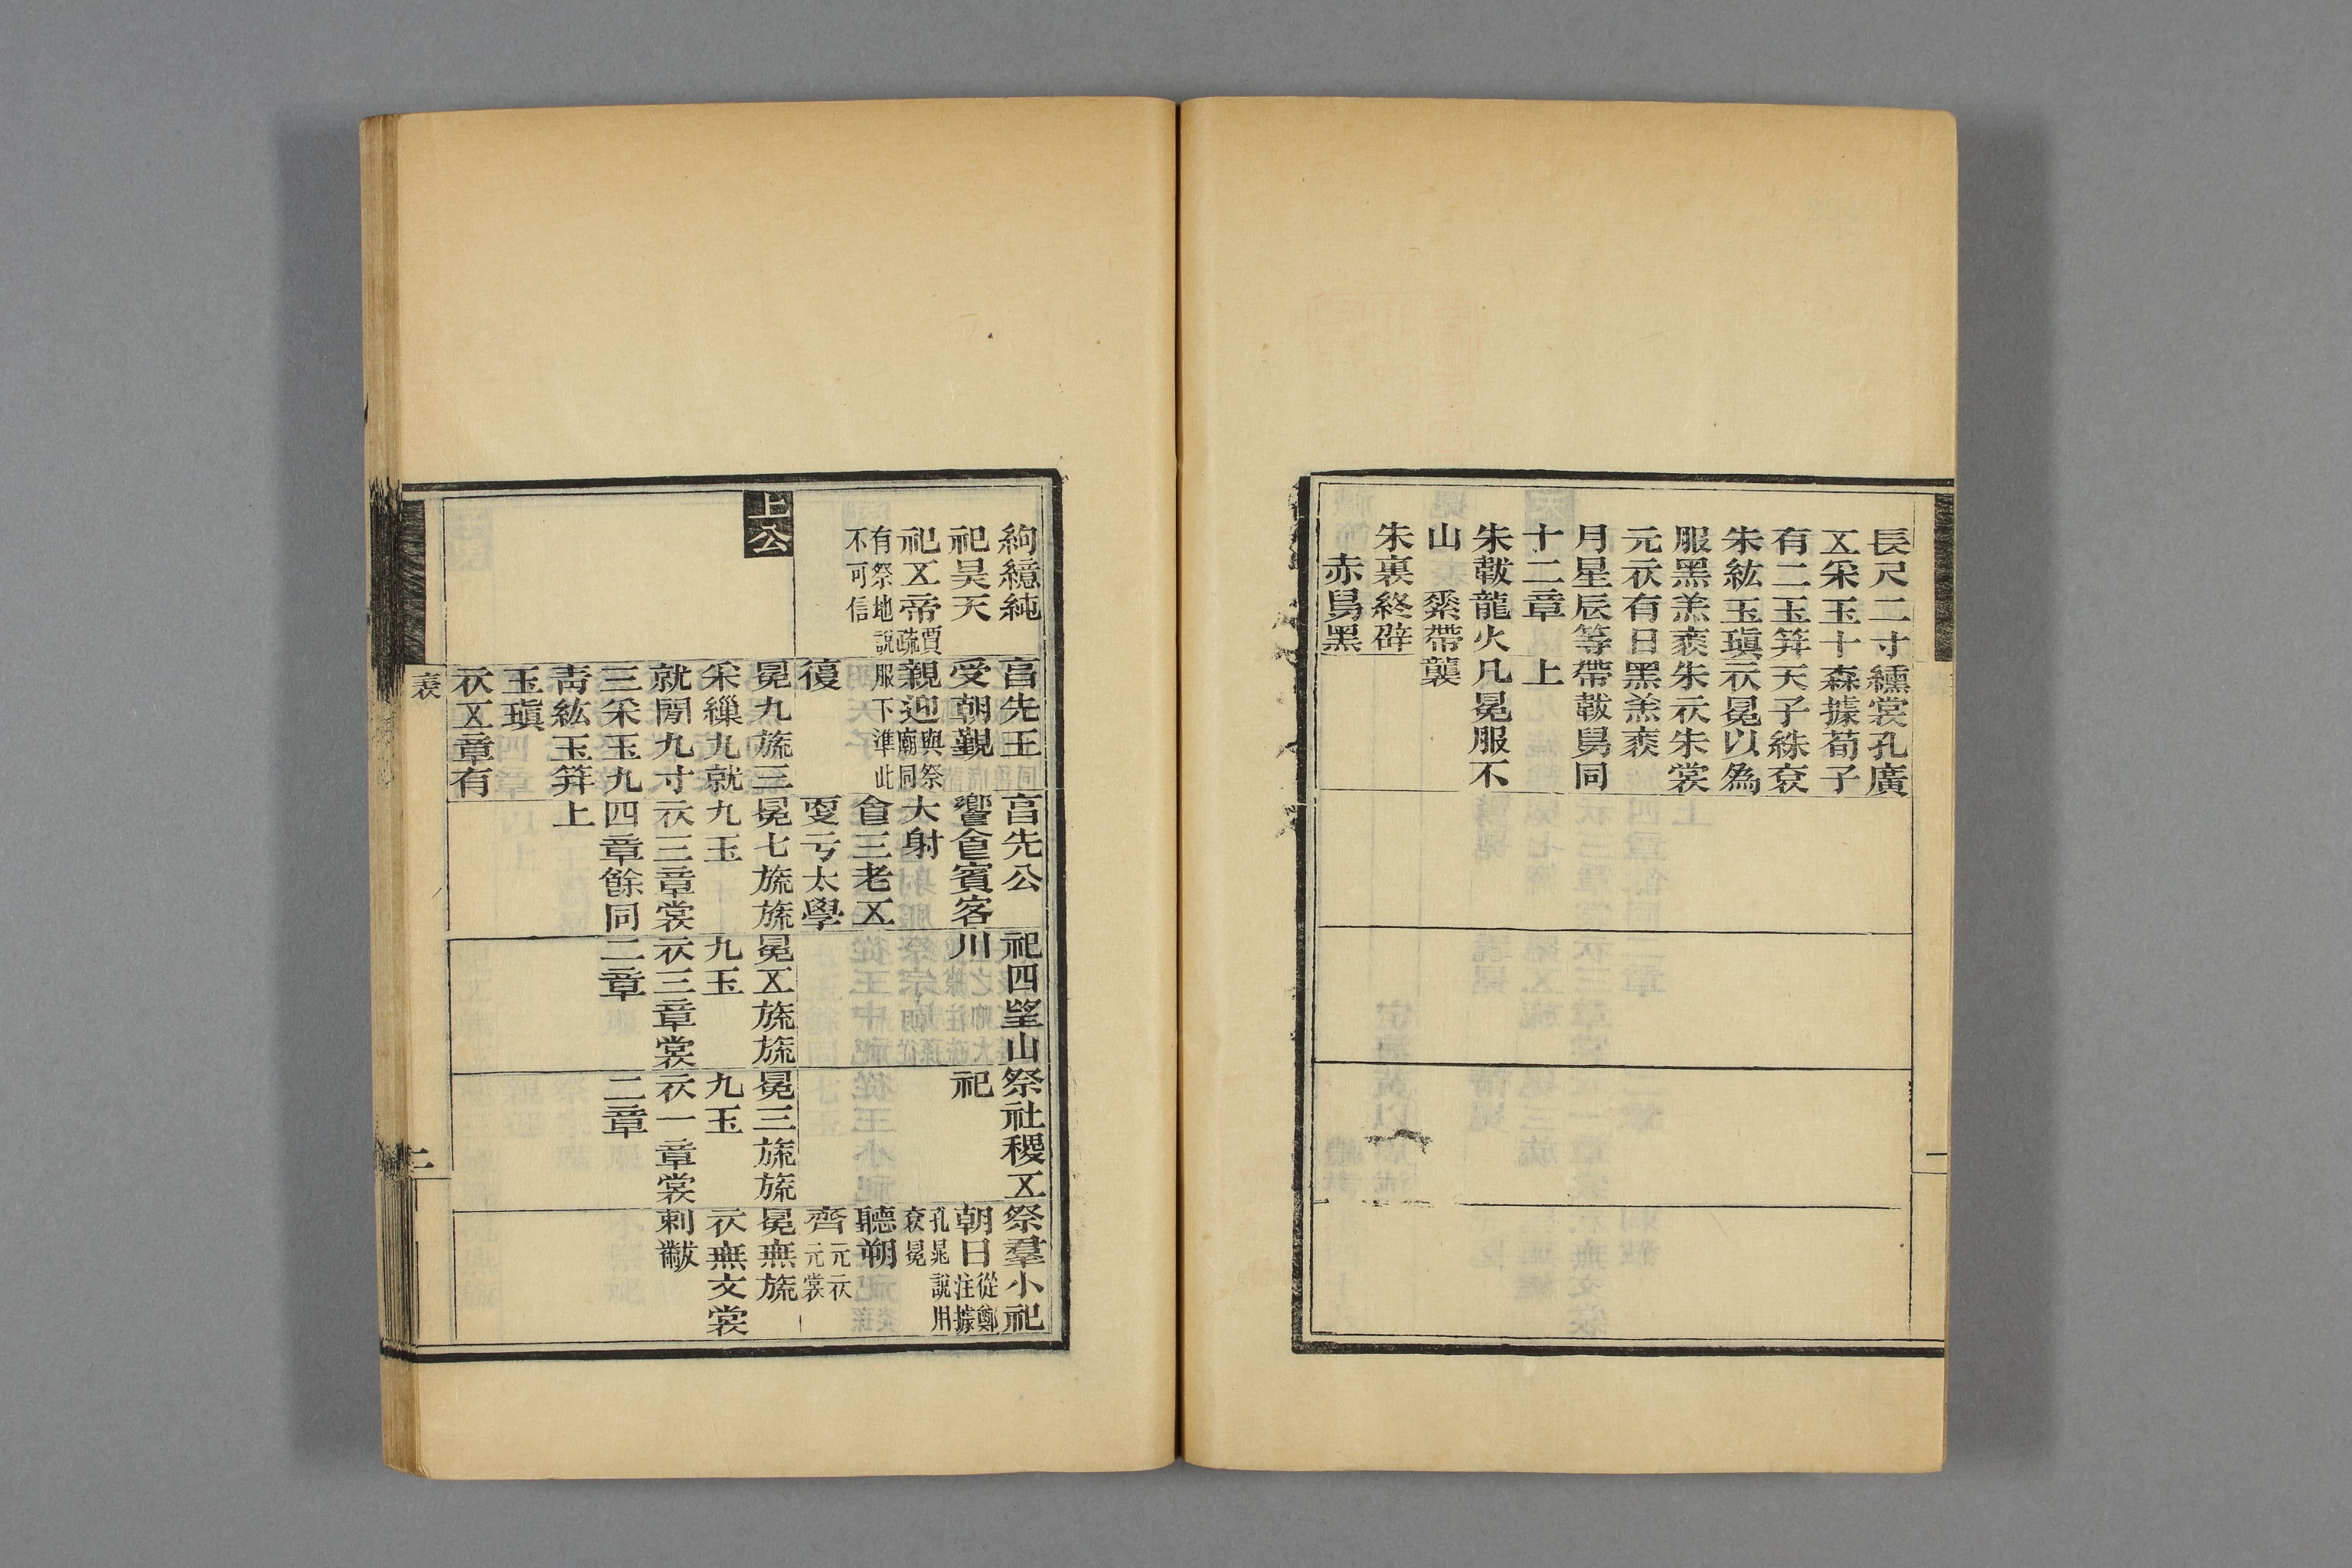 長尺二寸
五采玉十
有二玉笄
朱紘玉瑱
服黑羔裘
元衣有日
月星辰等
十二章
朱韍龍火
山　素帶
朱裏終辟
赤舄黑
纁裳孔廣
森據荀子
天子袾衮
衣冕以爲
朱衣朱裳
黑羔裘
帶韍舄同
上
凡冕服不
襲
絇繶純
祀昊天
祀五帝賈疏
有祭地說
不可信
亯先王
受朝覲
親迎與祭廟同
服下準此
復
亯先公
饗食賓客
大射
食三老五
叟亏太學
祀四望山
川
祭社稷五
祀
祭羣小祀
朝日從鄭注據
孔晁說用
衮冕
聽朔
齊元衣元裳
上公
冕九旒三
采繅九就
就閒九寸
三采玉九
靑紘玉笄
玉瑱
衣五章有
冕七旒旒
九玉
衣三章裳
四章餘同
上
冕五旒旒
九玉
衣三章裳
二章
冕三旒旒
九玉
衣一章裳
二章
冕無旒
衣無文裳
刺黻
表
二